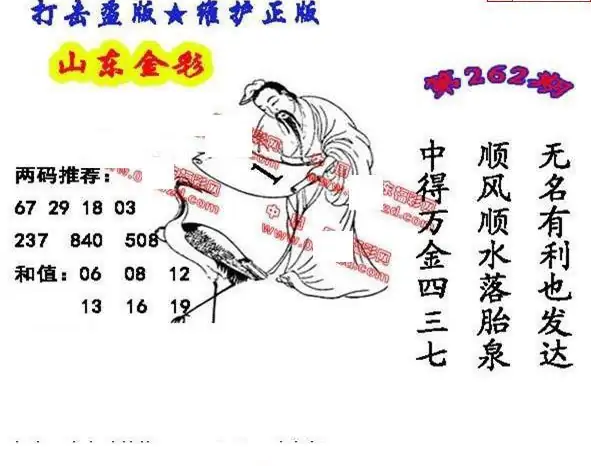 打击盗版★维护正版
山东金彩
第262期
两码推荐:
67 29 18 03
237 840 508
和值: 06 08 12
13 16 19
1
无名有利也发达
顺风顺水落胎泉
中得万金四三七